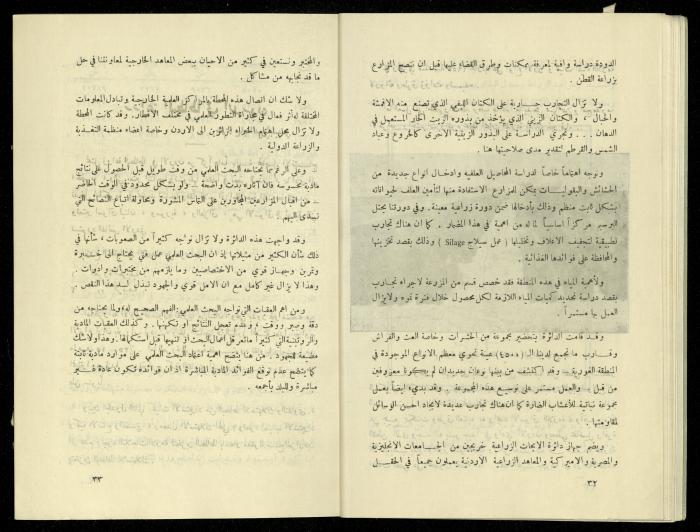 الدودة دراسة وافية لمعرفة مكنات وطرق القضاء عليها قبل ان ننصح المزارع
بزراعة القطن .
ولا تزال التجارب جارية على الكتان الليفي الذي تصنع منه الاقمشة
والحبال ، والكتان الزيتي الذي يؤخذ من بذوره الزيت الحار المستعمل في
الدهان ... وتجري الدراسة على البذور الزيتية الاخرى كالخروع وعباد
الشمس والقرطم لتقدير مدى صلاحيتها هنا .
ونوجه اهتماماً خاصاً لدراسة المحاصيل العلفية وادخال انواع جديدة من
الحشائش والبقوليات يمكن للمزارع الاستفادة منها لتأمين العلف لحيواناته
بشكل ثابت منظم وذلك بأدخالها ضمن دورة زراعية معينة . وفي دورتنا يحتل
البرسيم مركزاً اساسياً لما له من اهمية في هذا المضمار . كما ان هناك تجارب
تطبيقية لتجفيف الاعلاف وتخليلها ( عمل سيلاج Silage ) وذلك بقصد تخزينها
والمحافظة على فوائدها الغذائية .
ولأهمية المياه في هذه المنطقة فقد خصص قسم من المزرعة لاجراء تجارب
بقصد دراسة تحديد كميات المياه اللازمة لكل محصول خلال فترة نموه ولا يزال
العمل بها مستمراً .
وقد قامت الدائرة بتحضير مجموعة من الحشرات وخاصة العث والفراش
وقارب ما تجمع لدينا الـ (٤٥٠٠) عينة تحوي معظم الانواع الموجودة في
المنطقة الغورية – وقد اكتشف من بينها نوعان جديدان لم يكونا معروفين
من قبل – والعمل مستمر على توسيع هذه المجموعة . وقد بديء ايضاً بعمل
مجموعة نباتية للأعشاب الضارة كما ان هناك تجارب عديدة لايجاد احسن الوسائل
لمقاومتها .
ويضم جهاز دائرة الابحاث الزراعية خريجين من الجامعات الانجليزية
والمصرية والاميركية والمعاهد الزراعية الاردنية يعملون جميعاً في الحقل
٣٢
والمختبر ونستعين في كثير من الاحيان ببعض المعاهد الخارجية لمعاونتنا في حل
ما قد نجابهه من مشاكل .
ولا شك ان اتصال هذه المحطة بالمراكز العلمية الخارجية وتبادل المعلومات
المختلفة له أثر فعال في مجاراة التطور العلمي في مختلف الاقطار . وقد كانت المحطة
ولا تزال محل اهتمام الخبراء الزائرين الى الاردن وخاصة اعضاء منظمة التغذية
والزراعة الدولية .
وعلى الرغم مما يحتاجه البحث العلمي من وقت طويل قبل الحصول على نتائج
مادية ملموسة فان آثاره بدت واضحة – ولو بشكل محدود في الوقت الحاضر
– من اقبال المزارعين المجاورين على التماس المشورة ومحاولة اتباع النصائح التي
تسدى اليهم .
وقد واجهت هذه الدائرة ولا تزال تواجه كثيراً من الصعوبات ، شأنها في
ذلك شأن الكثير من مثيلاتها إذ ان البحث العلمي عمل فني يحتاج الى خبرة
وتمرين وجهاز قوي من الاختصاصيين وما يلزمهم من مختبرات وادوات .
وهذا لا يزال غير كامل مع ان الامل قوي والجهود تبذل لسد هذا النقص .
ومن اهم العقبات التي تواجه البحث العلمي : الفهم الصحيح له ، ولما يحتاجه من
دقة وصبر ووقت ، وعدم تعجل النتائج او تكهنها . وكذلك العقبات المادية
والروتينية التي كثيراً ما تعرقل اعمال البحث او تنهيها قبل استكمالها . وهذا ولا شك
مضيعة للجهود . من هنا يتضح اهمية اعتماد البحث العلمي على موارد مادية ثابتة
كما يتضح عدم توقع الفوائد المادية المباشرة اذ ان فوائده تكون عادة غير
مباشرة وللبلد بأجمعه .
٣٣